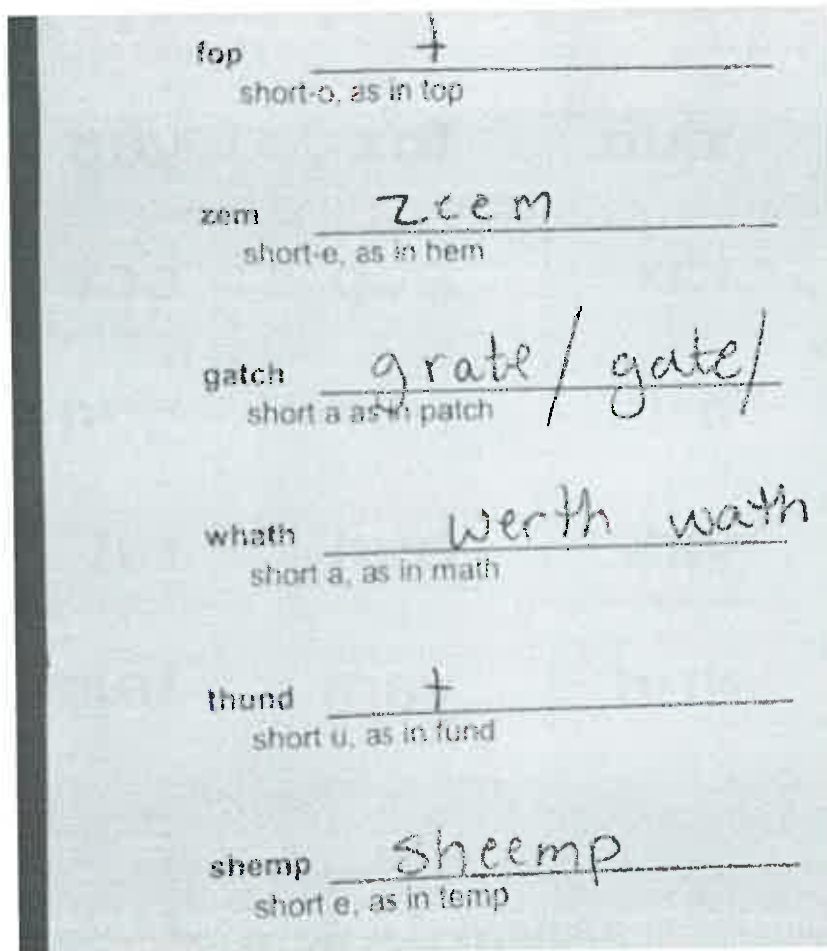 fop +
short-o, as in top
zem zeem
short-e, as in hem
gatch grate / gate /
short a as in patch
whath werth wath
short a, as in math
thund +
short u, as in fund
shemp sheemp
short e, as in temp